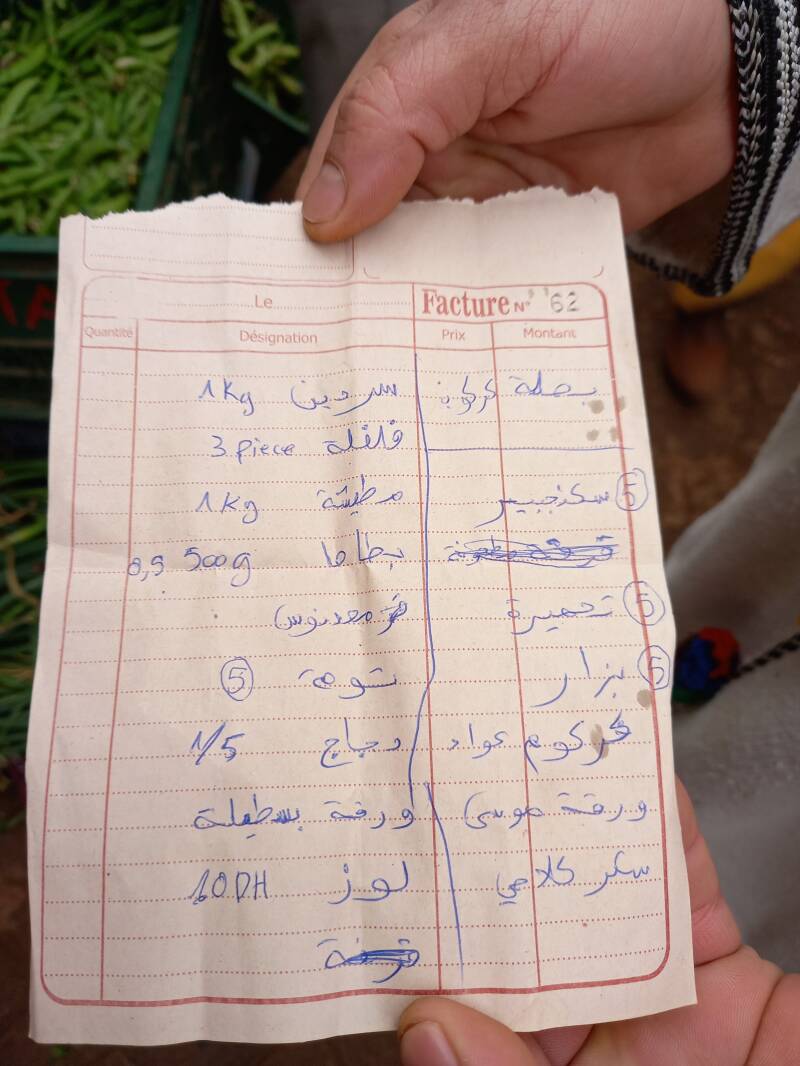 Le
Facture N° 62
Quantité
Désignation
Prix
Montant
سردين 1Kg
فلفلة 3 piece
مطيشة 1Kg
بطاطا 500g 0,5
معدنوس
تومة 5
دجاج 1/5
ورقة بسطيلة
لوز 10DH
قرفة
بصلة
5 سكنجبير
5 تحميرة
5 بزار
خرقوم عواد
ورقة موسى
سكر كلاصي